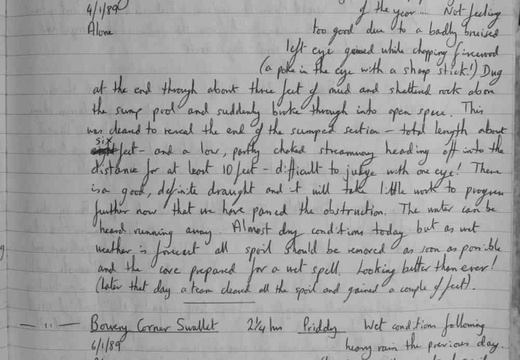 4/1/89 of the year... Not feeling
Alone too good due to a badly bruised
left eye gained while chopping firewood
(a poke in the eye with a sharp stick!) Dug
at the end through about three feet of mud and shattered rock above
the sump pool and suddenly broke through into open space. This
was cleared to reveal the end of the sumped section - total length about
six feet - and a low, partly choked streamway heading off into the
distance for at least 10 feet - difficult to judge with one eye! There
is a good, definite draught and it will take little work to progress
further now that we have passed the obstruction. The water can be
heard running away. Almost dry conditions today but as wet
weather is forecast all spoil should be removed as soon as possible
and the cave prepared for a wet spell. Looking better than ever!
(Later that day a team cleared all the spoil and gained a couple of feet).
Bowery Corner Swallet 2¼ hrs Priddy Wet conditions following
6/1/89 heavy rain the previous day.